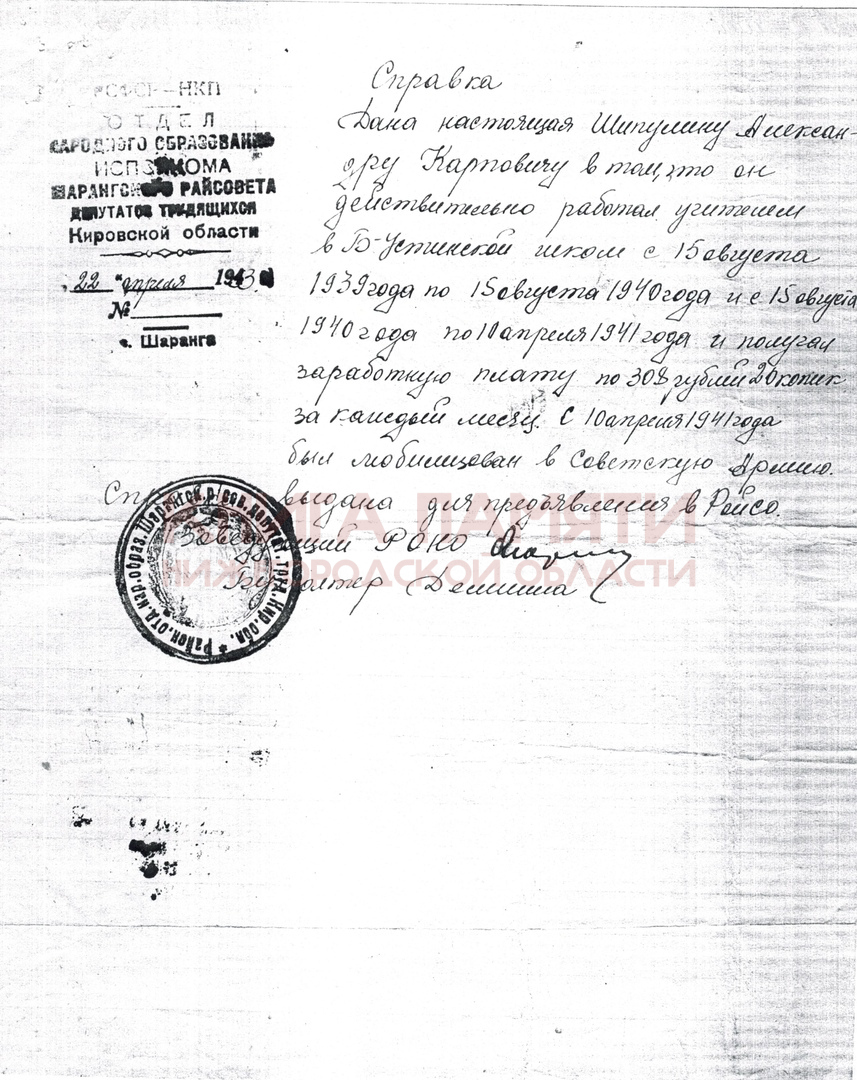 РСФСР — НКП
ОТДЕЛ
НАРОДНОГО ОБРАЗОВАНИЯ
ИСПОЛКОМА
ШАРАНГСКОГО РАЙСОВЕТА
ДЕПУТАТОВ ТРУДЯЩИХСЯ
Кировской области
„22 " апреля 1943
№
с. Шаранга
Справка
Дана настоящая Шипулину Алексан-
дру Карповичу в том, что он
действительно работал учителем
в Б-Устинской школе с 15 августа
1939 года по 15 августа 1940 года и с 15 августа
1940 года по 10 апреля 1941 года и получал
заработную плату по 308 рублей 20 копик
за каждый месяц. С 10 апреля 1941 года
был мобилизован в Советскую Армию.
выдана для предъявления в Райсо.
Заведующий РОНО
Бухгалтер Демшина
Район.отд.нар.образ.Шарангск.р/сов.депутат.труд.Кир.обл. *
КНИГА ПАМЯТИ
НИЖЕГОРОДСКОЙ ОБЛАСТИ